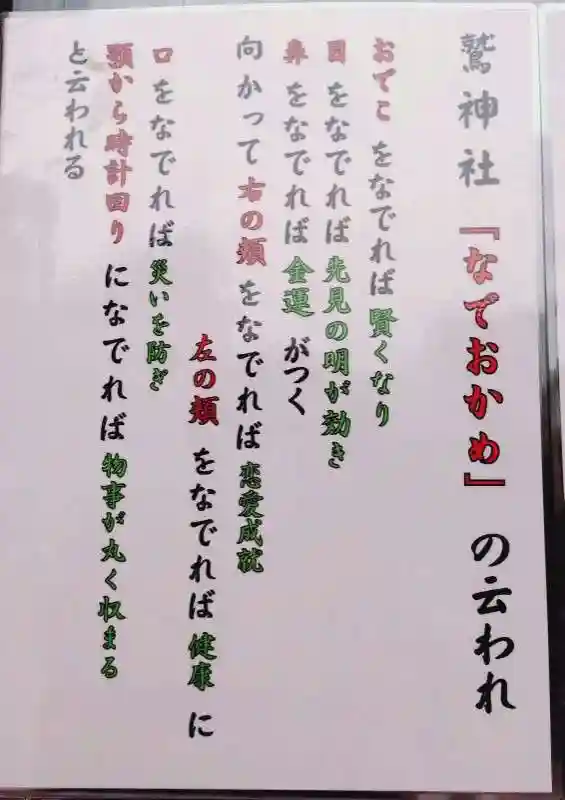 鷲神社『なでおかめ』の云われ
おでこをなでれば賢くなり
目をなでれば先見の明が効き
鼻をなでれば金運がつく
向かって右の頬をなでれば恋愛成就
左の頬をなでれば健康に
口をなでれば災いを防ぎ
顎から時計回りになでれば物事が丸く収まる
と云われる